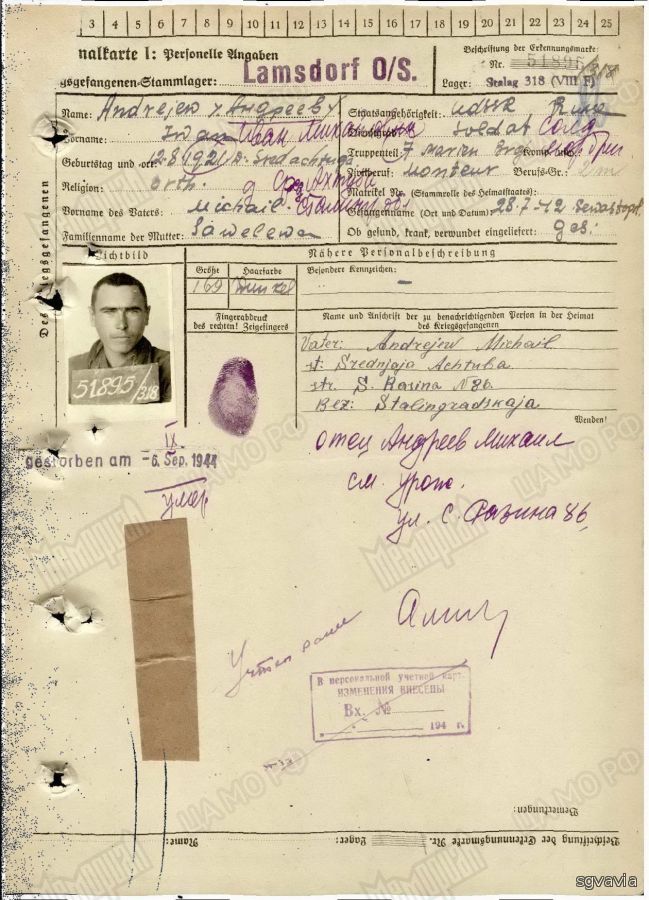 3 4 5 6 7 8 9 10 11 12 13 14 15 16 17 18 19 20 21 22 23 24 25
nalkarte I: Personelle Angaben
gsgefangenen-Stammlager: Lamsdorf O/S.
Beschriftung der Erkennungsmarke:
Nr. 51895/318
Lager: Stalag 318 (VIII F)
Des Kriegsgefangenen
Name: Andrejew Андреев
Vorname: Iwan Иван
Geburtstag und -ort: 2.8.1921
Religion: Orth.
Vorname des Vaters: Michail
Familienname der Mutter: Sawelewa
Staatsangehörigkeit: UdSSR
Dienstgrad: Soldat
Truppenteil: 7
Zivilberuf: Monteur Berufs-Gr.:
Matrikel Nr. (Stammrolle des Heimatstaates):
Gefangennahme (Ort und Datum): 28.7.42
Ob gesund, krank, verwundet eingeliefert: ges.
Lichtbild
Nähere Personalbeschreibung
Größe Haarfarbe Besondere Kennzeichen:
169 Dunkel –
Fingerabdruck
des rechten! Zeigefingers
Name und Anschrift der zu benachrichtigenden Person in der Heimat
des Kriegsgefangenen
Vater: Andrejew Michail
st. Srednjaja Achtuba
str. S. Rasina N 86.
Bez: Stalingradskaja
Wenden!
51895/318
IX.
gestorben am -6. Sep. 1944
умер
отец Андреев Михаил
ул. С. Разина 86
В персональной учетной карт.
ИЗМЕНЕНИЯ ВНЕСЕНЫ
Вх. №
194 г.
Bemerkungen:
Beschriftung der Erkennungsmarke Nr. Lager: Name:
ЦА МО РФ
Мемориал
sgvavia